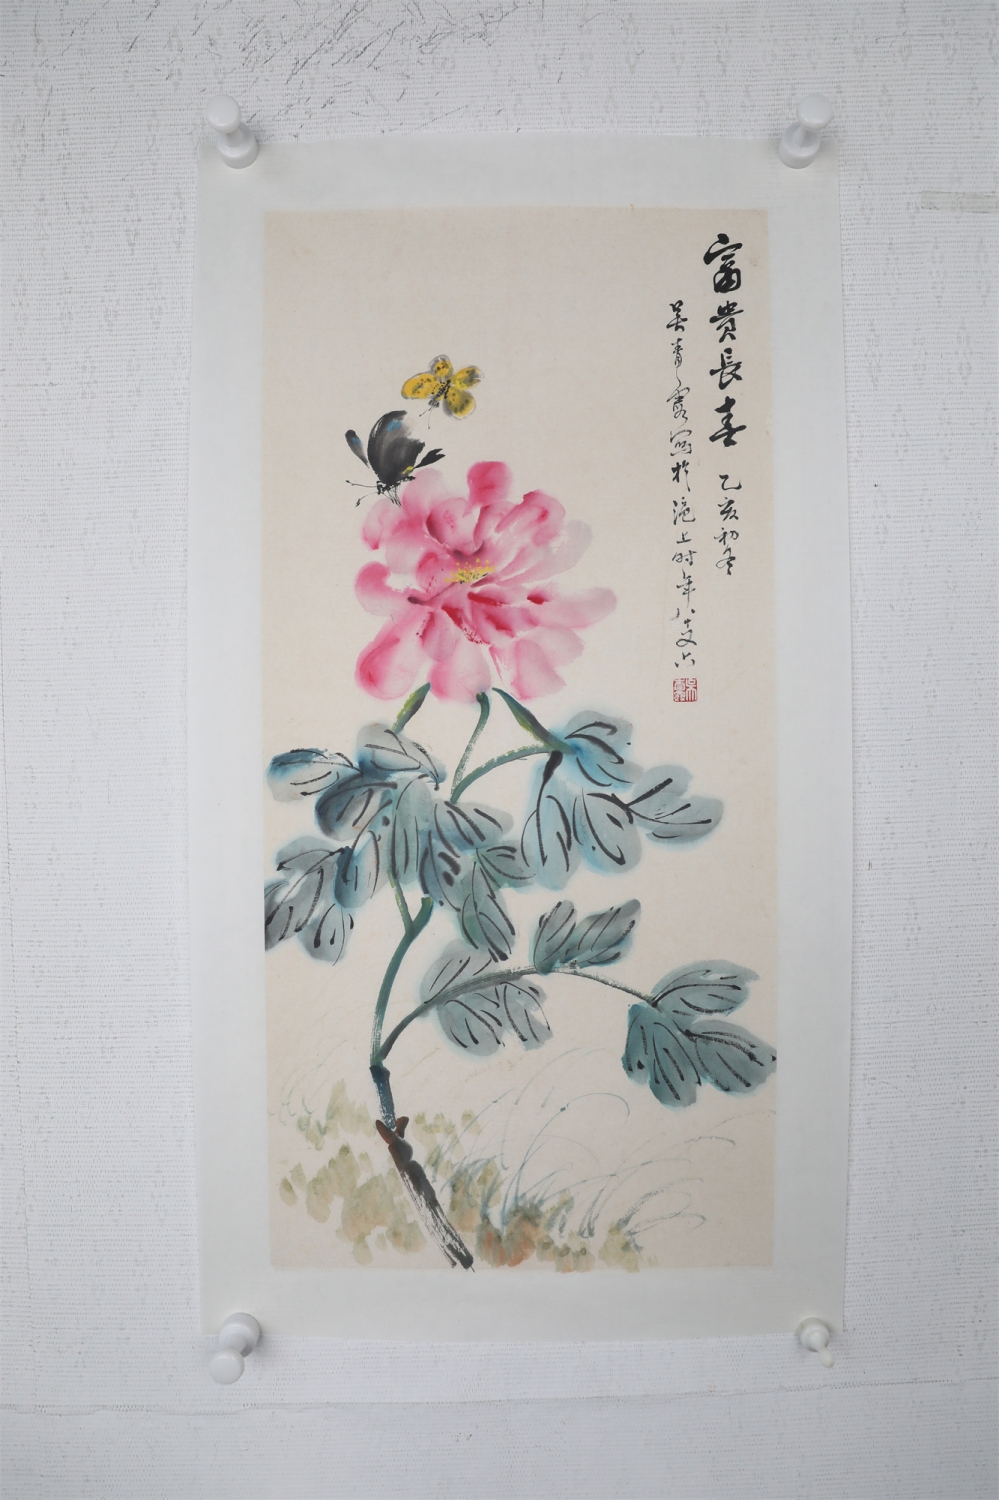 富貴長春 乙亥初冬
吴青霞写於滬上时年八十又六